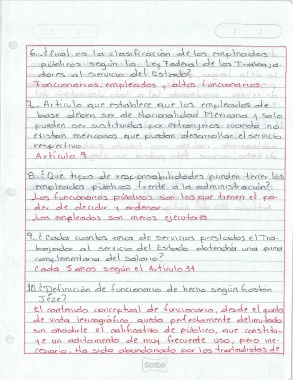 6.-¿Cual es la clasificación de los empleados
públicos según la Ley Federal de los Trabaja
dores al servicio del Estado?
Funcionarios, empleados y altos funcionarios
7.- Artículo que establece que los empleados de
base deben ser de Nacionalidad Mexicana y solo
pueden ser sustituidos por extranjeros cuando no
existan mexicanos que puedan desarrollar el servicio
respectivo
Artículo 9
8.-¿Que tipos de responsabilidades pueden tener los
empleados públicos frente a la administración?
Los funcionarios públicos son los que tienen el po-
der de decidir y ordenar
Los empleados son meros ejecutores
9.-¿Cada cuantos años de servicios prestados el Tra-
bajador al servicio del Estado obtendrá una prima
complementaria del salario?
Cada 5 años según el Artículo 34
10.¿Definición de funcionario de hecho según Gaston
Jéze?
El contenido conceptual de funcionario, desde el punto
de vista lexicográfico queda perfectamente delimitado
sin añadirle el calificativo de público, que constitu-
ye un aditamento de muy frecuente uso, pero inne-
cesario. Ha sido abandonado por los tratadistas de
Scribe